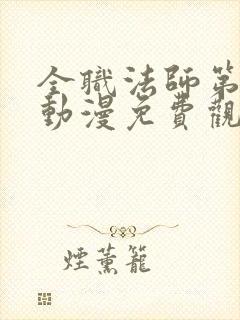 全職法師第
動漫免費觀
煙薰籠